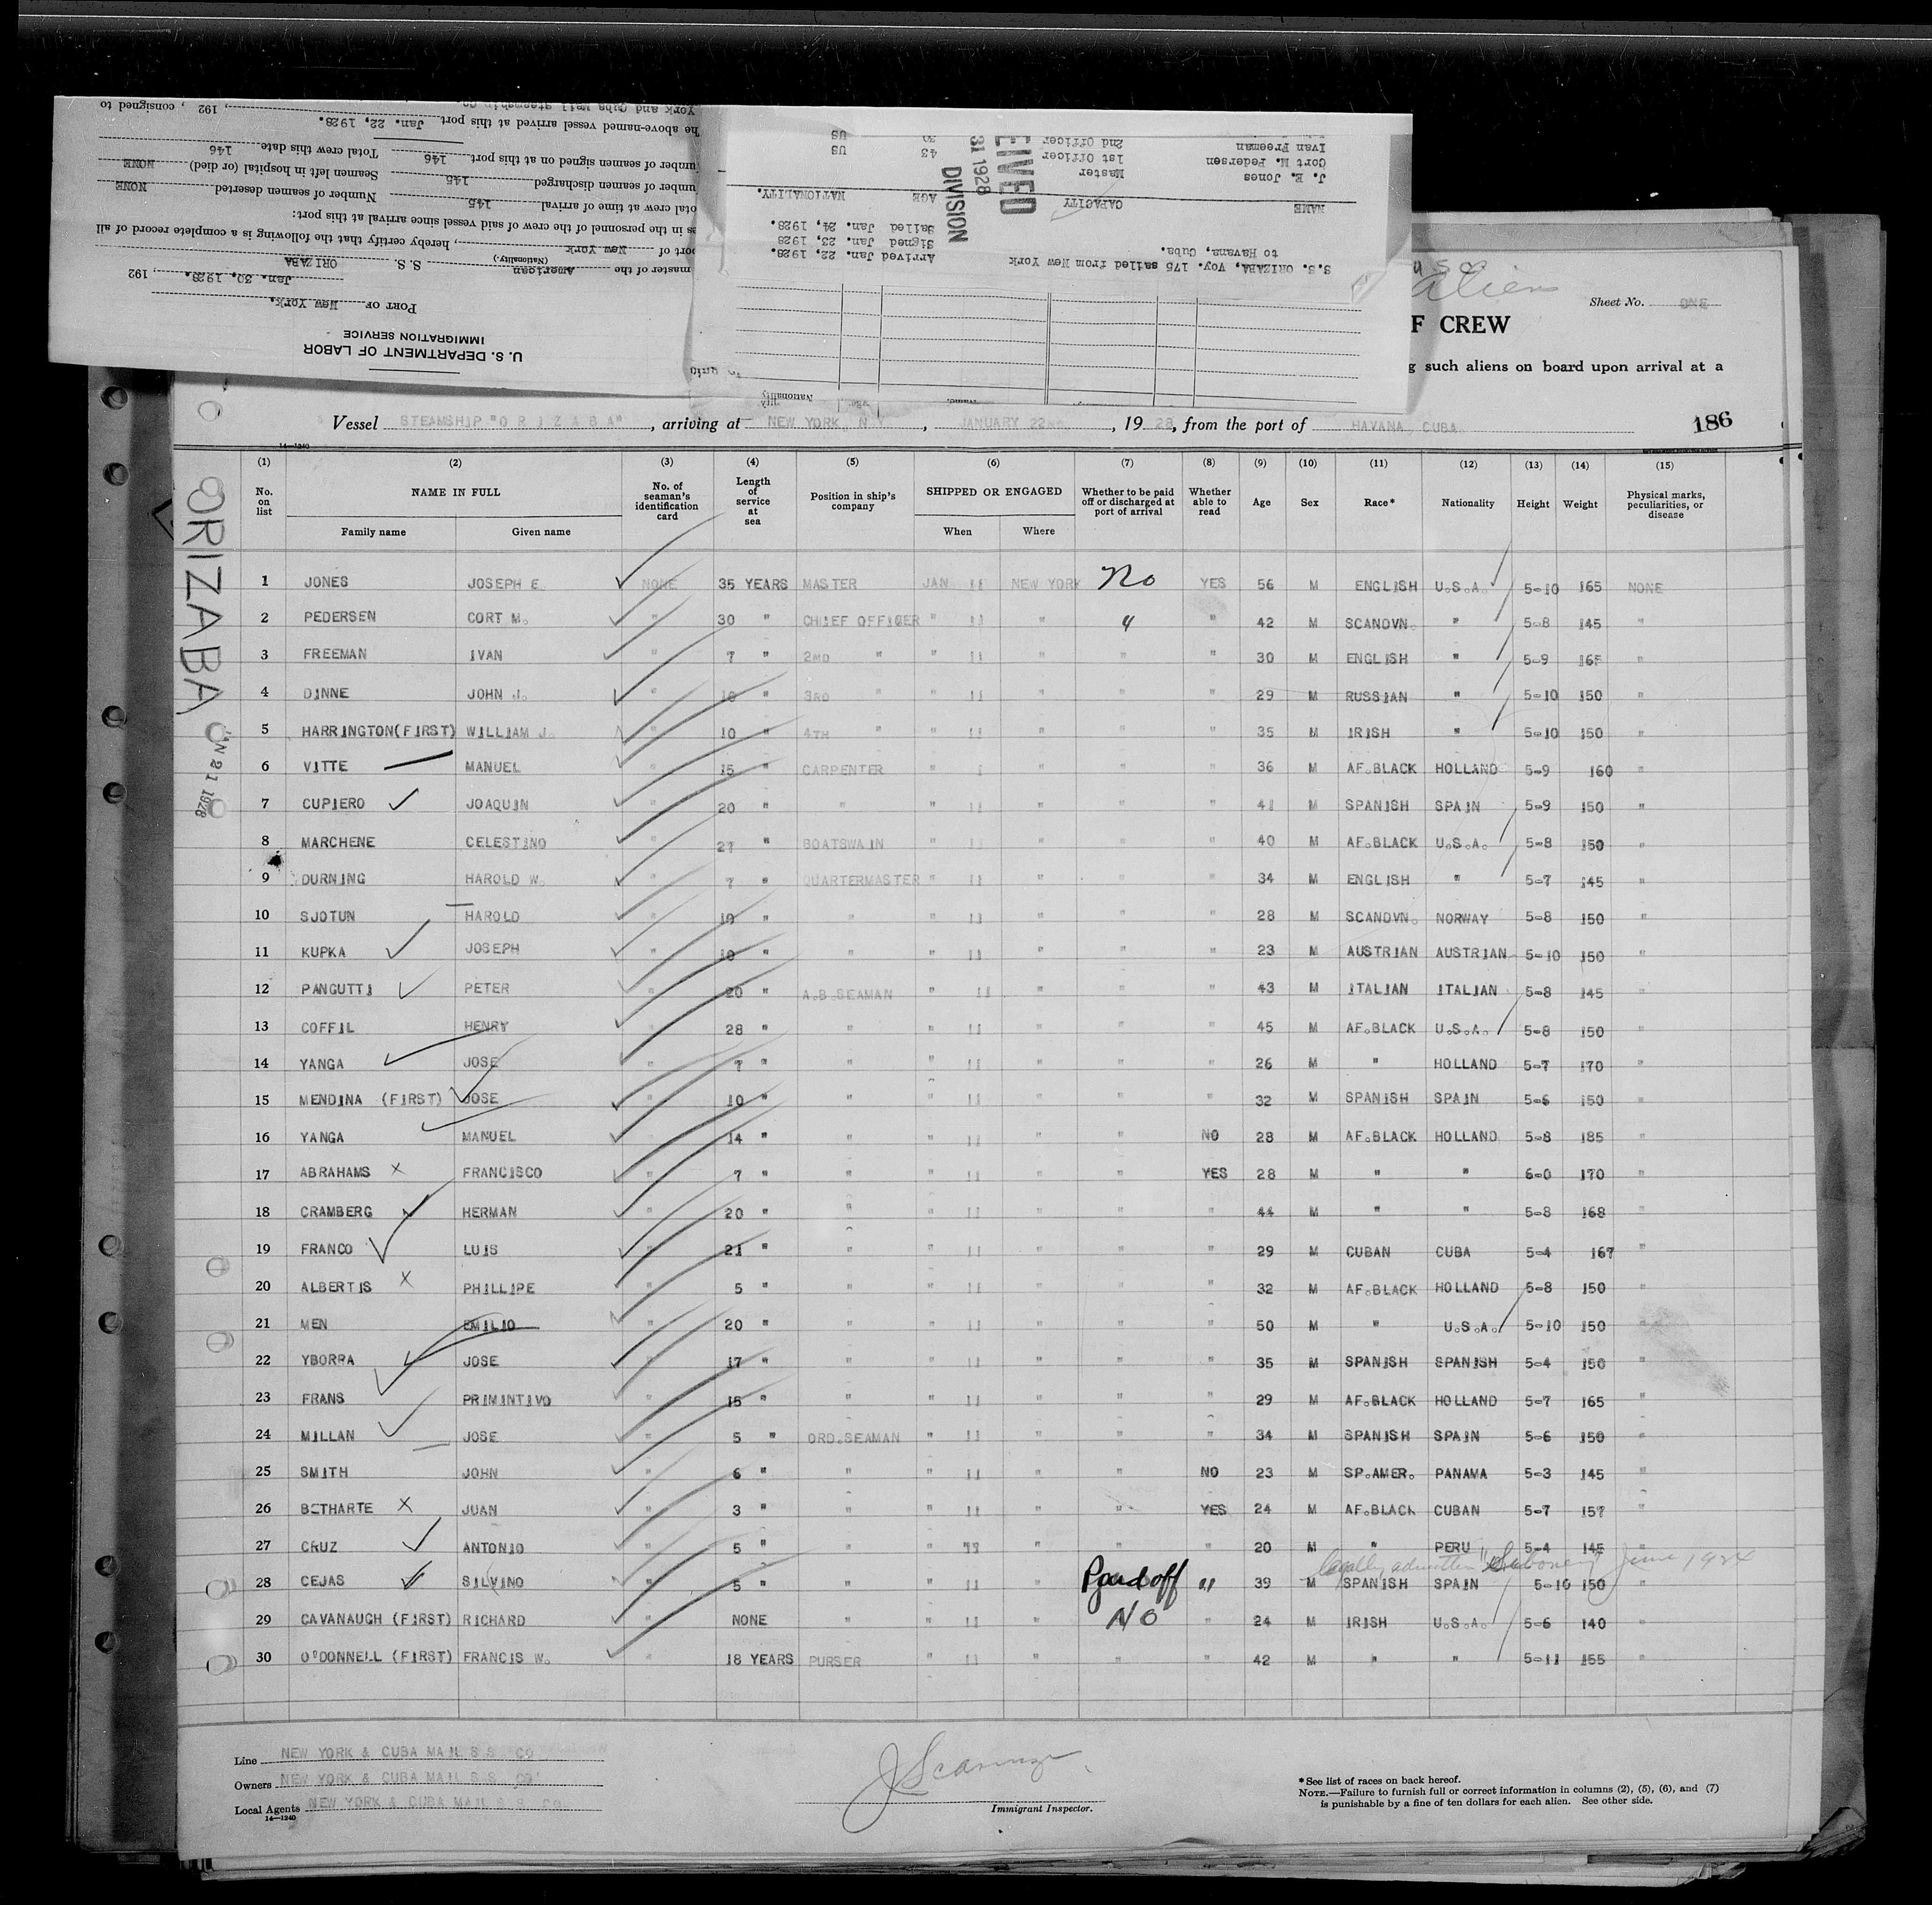 U. S. DEPARTMENT OF LABOR
IMMIGRATION SERVICE
PORT OF New York.
Jan. 30, 1928. , 192
master of the American S. S. ORIZABA
(Nationality)
port of New York , hereby certify that the following is a complete record of all
es in the personnel of the crew of said vessel since arrival at this port:
otal crew at time of arrival 145 Number of seamen deserted NONE
umber of seamen discharged 145 Seamen left in hospital (or died) NONE
umber of seamen signed on at this port 146 Total crew this date 146
he above-named vessel arrived at this port Jan. 22, 1928.
York and Cuba Mail Steamship Co. , 192 , consigned to
S.S. ORIZABA, Voy. 175 sailed from New York
to Havana, Cuba.
Arrived Jan. 22, 1928.
Signed Jan. 23, 1928
Sailed Jan. 24, 1928.
NAME CAPACITY AGE NATIONALITY.
J. E. Jones Master
Cort M. Pedersen 1st Officer 43 US
Ivan Freeman 2nd Officer 30 US
31 1928
DIVISION
Nationality
Alien
Sheet No. ONE
F CREW
g such aliens on board upon arrival at a
Vessel STEAMSHIP "O R I Z A B A" , arriving at NEW YORK, N.Y. , JANUARY 22 , 19 28, from the port of HAVANA, CUBA.
186
14—1240
ORIZABA
21 1928
(1) (2) (3) (4) (5) (6) (7) (8) (9) (10) (11) (12) (13) (14) (15)
No. on list NAME IN FULL No. of seaman's identification card Length of service at sea Position in ship's company SHIPPED OR ENGAGED Whether to be paid off or discharged at port of arrival Whether able to read Age Sex Race* Nationality Height Weight Physical marks, peculiarities, or disease
Family name Given name When Where
1 JONES JOSEPH E. NONE 35 YEARS MASTER JAN 11 NEW YORK No YES 56 M ENGLISH U.S.A. 5-10 165 NONE
2 PEDERSEN CORT M. " 30 " CHIEF OFFICER " 11 " " " 42 M SCANDVN. " 5-8 145 "
3 FREEMAN IVAN " 7 " 2ND " " 11 " " " 30 M ENGLISH " 5-9 165 "
4 DINNE JOHN J. " 3RD " " 11 " " " 29 M RUSSIAN " 5-10 150 "
5 HARRINGTON(FIRST) WILLIAM J. 10 " 4TH " " 11 " " " 35 M IRISH " 5-10 150 "
6 VITTE MANUEL " 15 " CARPENTER " " " " 36 M AF.BLACK HOLLAND 5-9 160 "
7 CUPIERO JOAQUIN " 20 " " " 11 " " " 41 M SPANISH SPAIN 5-9 150 "
8 MARCHENE CELESTINO " 27 " BOATSWAIN " 11 " " " 40 M AF.BLACK U.S.A. 5-8 150 "
9 DURNING HAROLD W. " 7 " QUARTERMASTER " 11 " " " 34 M ENGLISH " 5-7 145 "
10 SJOTUN HAROLD " 10 " " " 11 " " " 28 M SCANDVN. NORWAY 5-8 150 "
11 KUPKA JOSEPH " 10 " " " 11 " " " 23 M AUSTRIAN AUSTRIAN 5-10 150 "
12 PANGUTTI PETER " 20 " A.B.SEAMAN " 11 " " " 43 M ITALIAN ITALIAN 5-8 145 "
13 COFFIL HENRY " 28 " " " 11 " " " 45 M AF.BLACK U.S.A. 5-8 150 "
14 YANGA JOSE " 7 " " " 11 " " " 26 M " HOLLAND 5-7 170 "
15 MENDINA (FIRST) JOSE " 10 " " " 11 " " " 32 M SPANISH SPAIN 5-6 150 "
16 YANGA MANUEL " 14 " " " 11 " " NO 28 M AF.BLACK HOLLAND 5-8 185 "
17 ABRAHAMS FRANCISCO " 7 " " " 11 " " YES 28 M " " 6-0 170 "
18 CRAMBERG HERMAN " 20 " " " 11 " " " 44 M " " 5-8 168 "
19 FRANCO LUIS " 21 " " " 11 " " " 29 M CUBAN CUBA 5-4 167 "
20 ALBERTIS PHILLIPE " 5 " " " 11 " " " 32 M AF.BLACK HOLLAND 5-8 150 "
21 MEN EMILIO " 20 " " " 11 " " " 50 M " U.S.A. 5-10 150 "
22 YBORRA JOSE " 17 " " " 11 " " " 35 M SPANISH SPANISH 5-4 150 "
23 FRANS PRIMINTIVO " 15 " " " 11 " " " 29 M AF.BLACK HOLLAND 5-7 165 "
24 MILLAN JOSE " 5 " ORD.SEAMAN " 11 " " " 34 M SPANISH SPAIN 5-6 150 "
25 SMITH JOHN " 6 " " " 11 " " NO 23 M SP.AMER. PANAMA 5-3 145 "
26 BETHARTE JUAN " 3 " " " 11 " " YES 24 M AF.BLACK CUBAN 5-7 157 "
27 CRUZ ANTONIO " 5 " " " 11 " " " 20 M " PERU 5-4 145 "
legally admitted "Siboney" June 1924
28 CEJAS SILVINO " 5 " " " 11 " Paid off " 39 M SPANISH SPAIN 5-10 150 "
29 CAVANAUGH (FIRST) RICHARD " NONE " " 11 " NO " 24 M IRISH U.S.A. 5-6 140 "
30 O'DONNELL (FIRST) FRANCIS W. " 18 YEARS PURSER " 11 " " " 42 M " " 5-11 155 "
Line NEW YORK & CUBA MAIL S.S. CO
Owners NEW YORK & CUBA MAIL S.S. CO
Local Agents NEW YORK & CUBA MAIL S.S. CO
14—1240
Immigrant Inspector.
*See list of races on back hereof.
NOTE.—Failure to furnish full or correct information in columns (2), (5), (6), and (7)
is punishable by a fine of ten dollars for each alien. See other side.